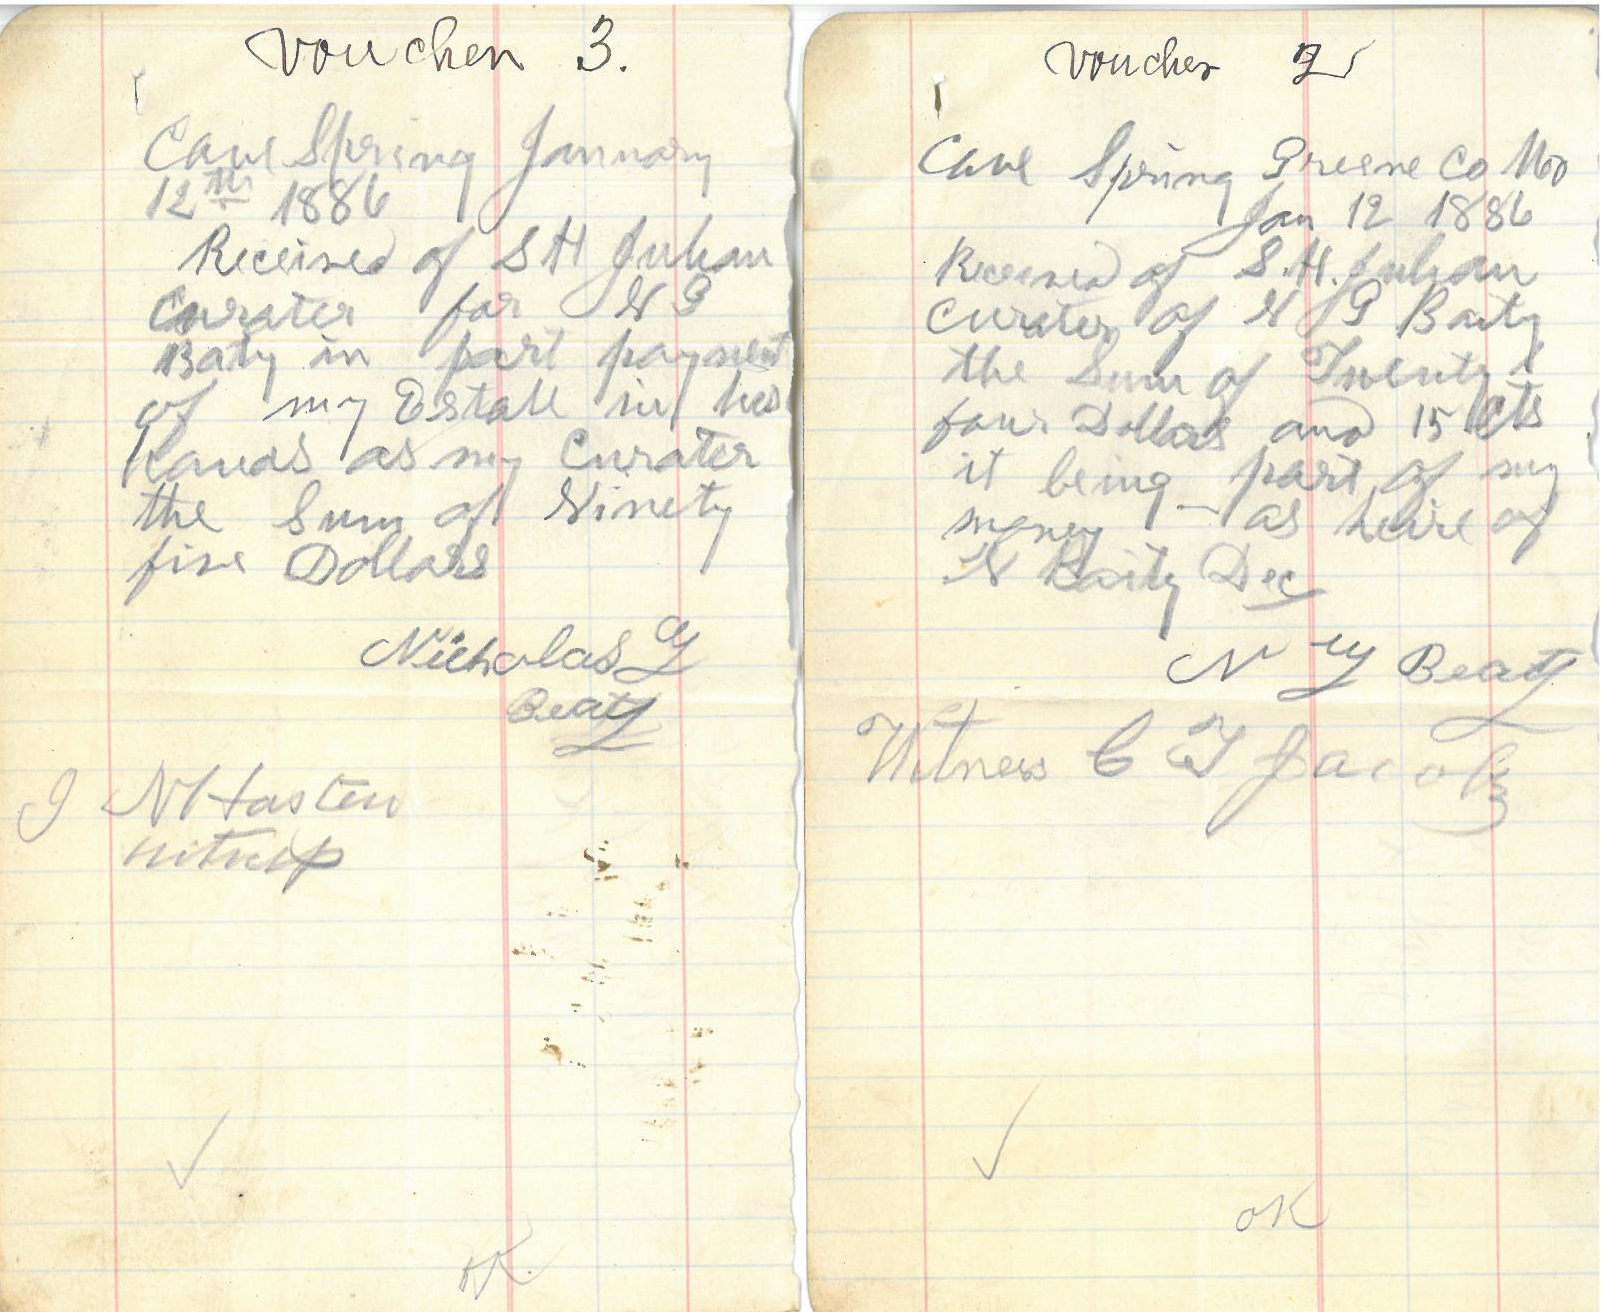 Voucher 3.
Cave Spring January
12th 1886
Received of S H Julian
Curater for N G
Baty in part payment
of my Estate in his
hands as my Curater
the Sum of Ninety
five Dollars
Nicholas G
Beaty
J N Hasten
witness
OK
Voucher 2
Cave Spring Greene Co Mo
Jan 12 1886
Received of S. H. Julian
Curater of N G Baity
the Sum of Twenty
four Dollars and 15 cts
it being part of my
money as heire of
N Baity Dec
N G Beaty
Witness C T Jacobs
OK